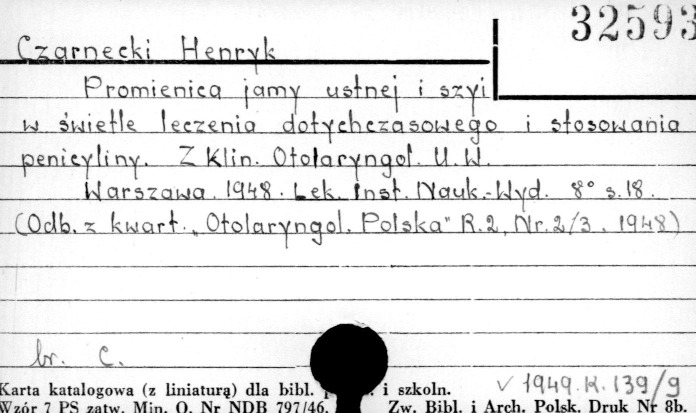 32593
Czarnecki Henryk
Promienica jamy ustnej i szyi
w świetle leczenia dotychczasowego i stosowania
penicyliny. Z Klin. Otolaryngol. U.W.
Warszawa. 1948. Lek. Inst. Nauk.-Wyd. 8° s.18.
(Odb. z kwart. „Otolaryngol. Polska" R.2, Nr.2/3. 1948)
br. C.
Karta katalogowa (z liniaturą) dla bibl. i szkoln.
v 1949.K.139/9
Wzór 7 PS zatw. Min. O. Nr NDB 797/46. Zw. Bibl. i Arch. Polsk. Druk Nr 8b.